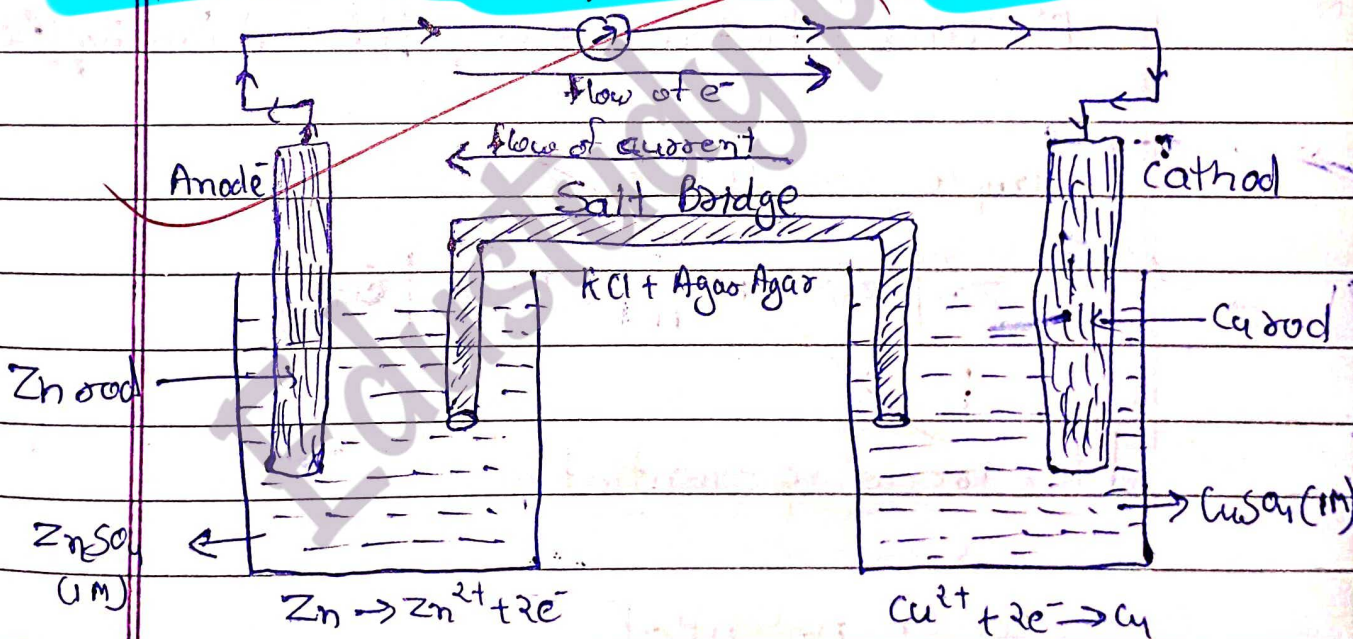 flow of e⁻
flow of current
Anode
Cathod
Salt Bridge
KCl + Agar Agar
Zn rod
Cu rod
ZnSO₄
(1M)
CuSO₄ (1M)
Zn → Zn²⁺ + 2e⁻
Cu²⁺ + 2e⁻ → Cu